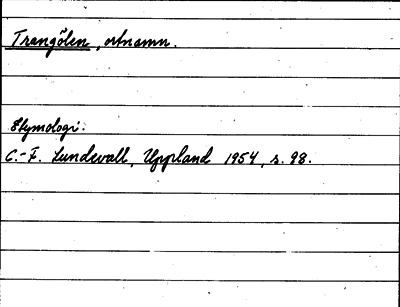 Trangölen, ortnamn.
Etymologi:
C.-F. Lundevall, Uppland 1954, s. 98.